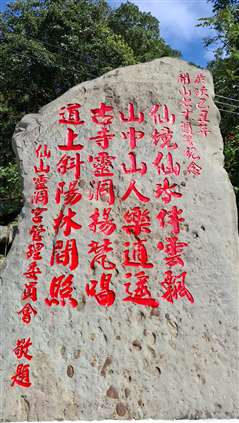 歲次乙丑年
開山七十週年紀念
仙境仙水伴雲飄
山中山人樂逍遙
古寺靈洞揚梵唱
道上斜陽休閒照
仙山靈洞宮管理委員會 敬題